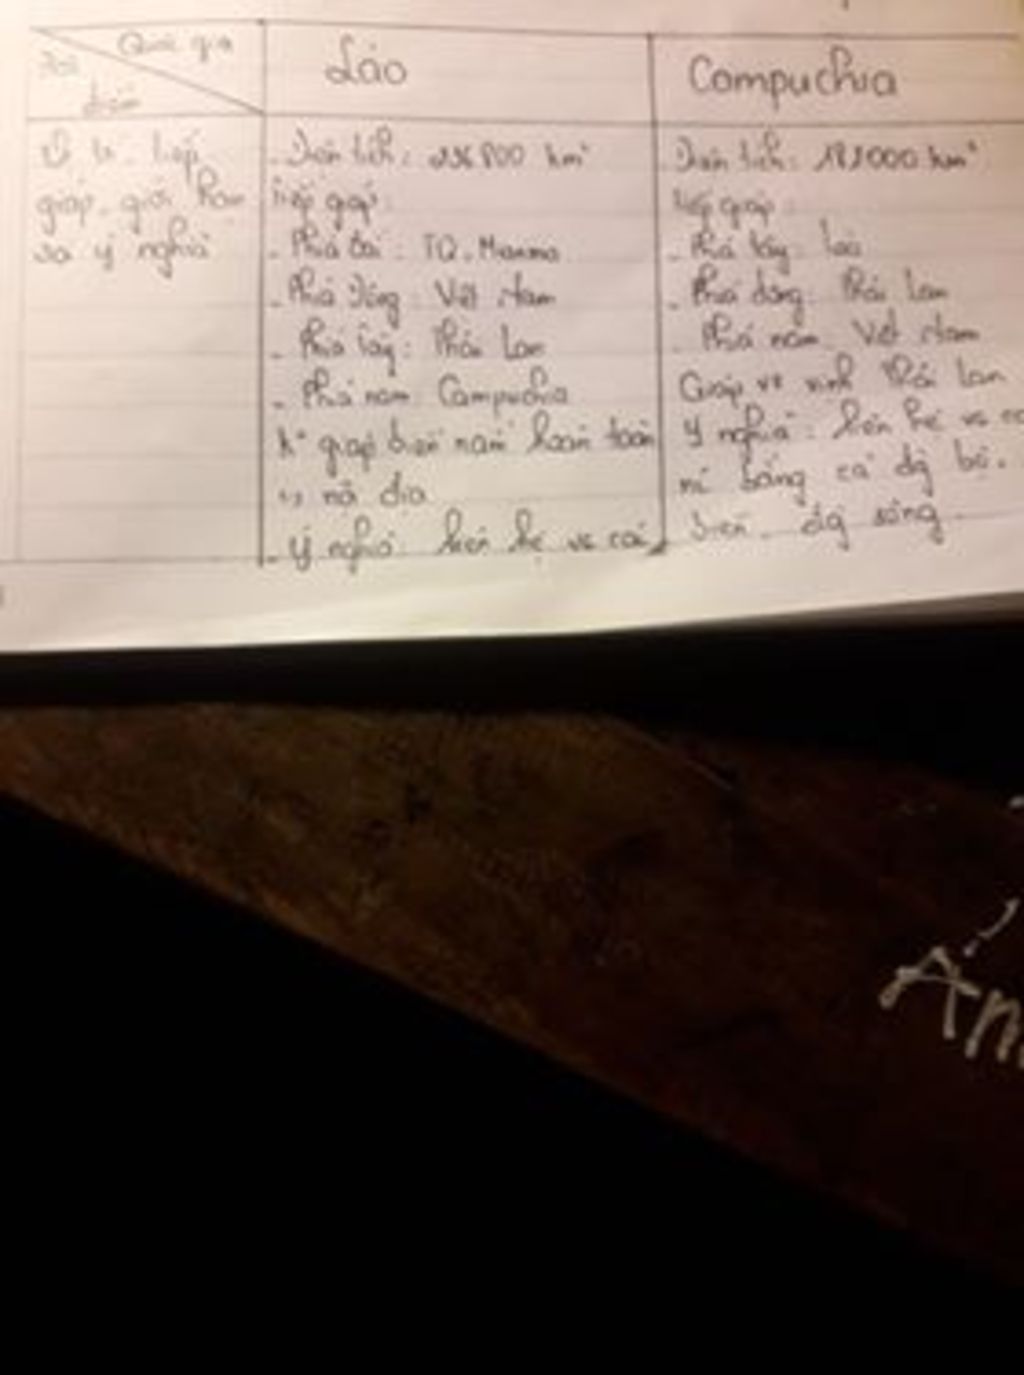 Quốc gia
Đặc
điểm
Lào
Campuchia
Vị trí tiếp
giáp, giới hạn
và ý nghĩa
- Diện tích: 236800 km²
Tiếp giáp:
- Phía bắc: TQ, Mianma
- Phía Đông: Việt Nam
- Phía tây: Thái Lan
- Phía nam: Campuchia
K° giáp biển nằm hoàn toàn
nội địa
- Ý nghĩa: liên hệ vs các
Diện tích: 181000 km²
Tiếp giáp:
- Phía tây: Lào
- Phía đông: Thái Lan
- Phía nam: Việt Nam
Giáp vs vịnh Thái Lan
Ý nghĩa: liên hệ vs
bằng cả đg bộ,
biển, đg sông